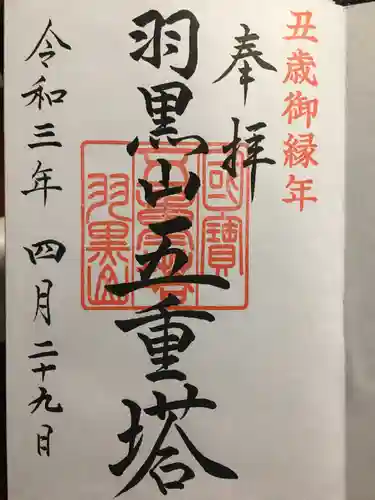 丑歳御縁年
奉拝
國寶
五重塔
羽黒山
羽黒山五重塔
令和三年四月二十九日